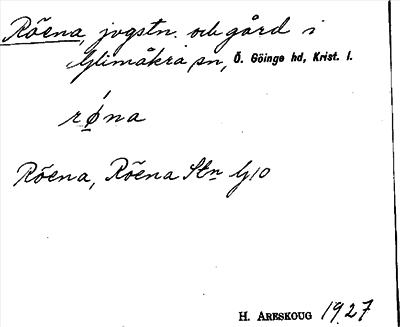 Röena, jvgstn. och gård i
Glimåkra sn, Ö. Göinge hd, Krist. l.
rǿna
Röena, Röena Stn G10
H. ARESKOUG 1927